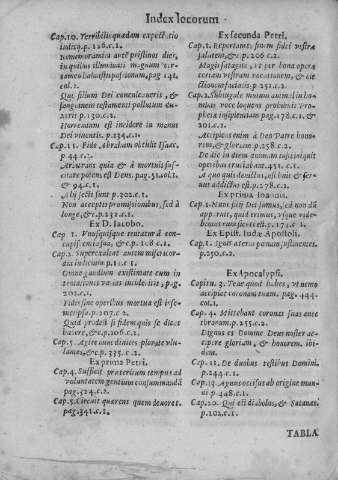 Index locorum
Cap. 10. Terribilis quædam expectatio
iudicij. p. 126. c. 1.
Rememoramini autē pristinos dies,
in quibus illuminati magnum cer-
tamen sustinuistis passionum, pag. 141.
col. 2.
Qui filium Dei conculcauerit, &
sanguinem testamenti pollutum du-
xerit p. 130. c. 2.
Horrendum est incidere in manus
Dei viuentis. p. 234. c. 1.
Cap. 11. Fide Abraham obtulit Isaac.
p. 44. c.
Arbitrans quia & à mortuis sus-
citare potens est Deus. pag. 51. col. 1.
& 94. c. 1.
Alij secti sunt p. 302. c. 1.
Non acceptis promissionibus, sed à
longè, &c. p. 232. c. 1.
Ex D. Iacobo.
Cap. 1. Vnusquisque tentatur à con-
cupiscentia sua, &c. p. 108 c. 1.
Cap. 2. Superexaltat autem misericor-
dia iudicium p. 11. c. 1.
Omne gaudium existimate cum in
tentationes varias incideritis, p. g.
202. c. 1.
Fides sine operibus mortua est in se-
metipsa. p. 207. c. 2.
Quid proderit si fidem quis se dicat
habere, &c. p. 206. c. 2.
Cap. 5. Agite nunc diuites, plorate vlu-
lantes, &c. p. 335. c. 2.
Ex prima Petri.
Cap. 4. Sufficit præteritum tempus ad
voluntatem gentium consummandā
pag. 324. c. 2.
Cap. 5. Circuit quærens quem deuoret.
pag. 341. c. 2.
Ex secunda Petri.
Cap. 1.
p. 206 c. 2.
Magis satagite, vt per bona opera
certam vestram vocationem, & ele-
ctionem faciatis. p. 251. c. 2.
Cap. 2. Subiugale mutum animal in ho-
minis voce loquens prohibuit Pro-
phetæ insipientiam pag. 176. c. 1, &
201. c. 2.
Accipiens enim à Deo Patre hono-
rem, & gloriam. p. 258. c. 2.
De die in diem animam iustam iniquis
operibus cruciabant. 451. c. 1.
A quo quis deuictus, est huic & ser-
uus addictus est. p. 278. c. 2.
Ex prima Ioannis.
Cap. 3. Nunc filij Dei sumus, sed non dū
apparuit, quid erimus, vsque vide-
bimus eum sicuti est. p. 174. c. 1
Ex Epist. Iudæ Apostoli.
Cap. 1. Ignis æterni pœnam sustinentes.
p. 250. c. 2.
Ex Apocalypsi.
Capitu. 3. Tene quod habes, vt nemo
accipiat coronam tuam. pag. 444.
col. 1.
Cap. 4. Mittebant coronas suas ante
thronum. p. 255. c. 2.
Dignus es Domine Deus noster acci-
pere gloriam, & honorem. ibi-
dem.
Cap. 11. De duobus testibus Domini.
p. 244. c. 1.
Cap. 13. Agnus occisus ab origine mun-
di p. 448. c. 1.
Cap. 20. Qui est diabolus, & Satanas.
p. 102. c. 1.
TABLA